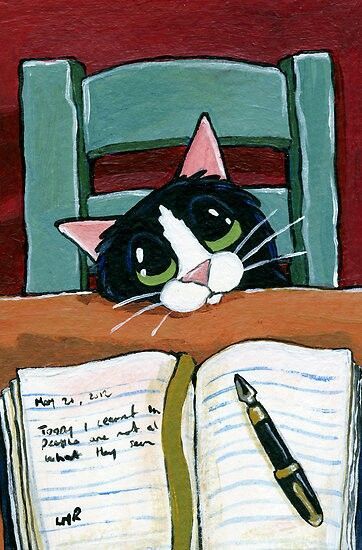 May 21, 2012
Today I learnt
People are not al
what they seem
LMR